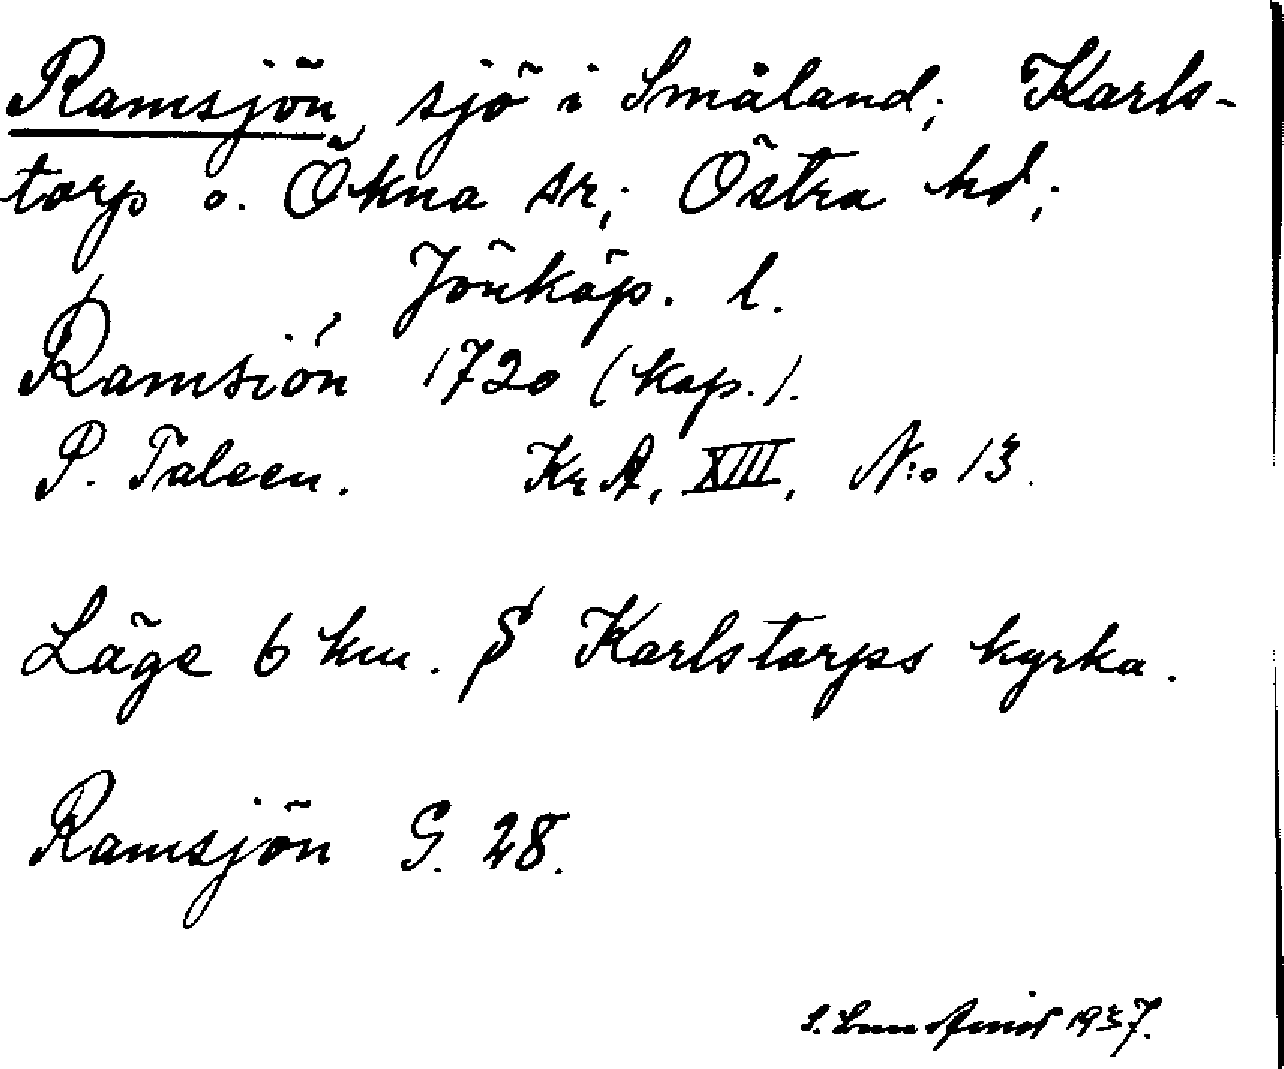 Ramsjön, sjö i Småland; Karls-
torp o. Ökna sr; Östra hd;
Jönköp. l.
Ramsión 1720 (kop.).
P. Taleen. Kr A, XIII, N:o 13.
Läge 6 km. S Karlstorps kyrka.
Ramsjön G. 28.
1937.